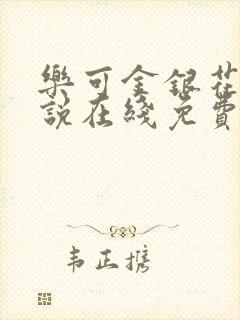 樂可金銀花
說在綫免費
韦正携